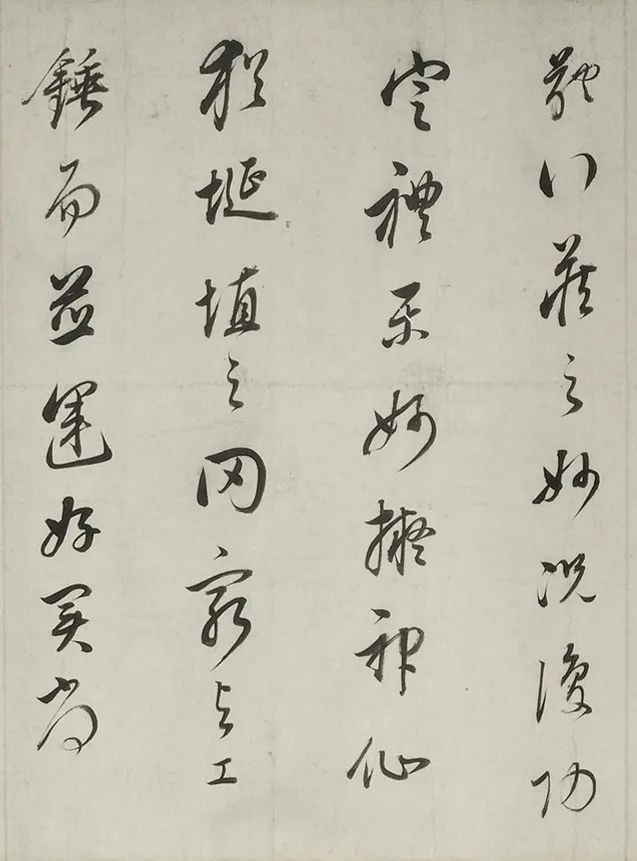 體行藏之妙況復功
宣禮樂妙擬神仙
猶埏埴之罔窮與工
錘而並運好異尚